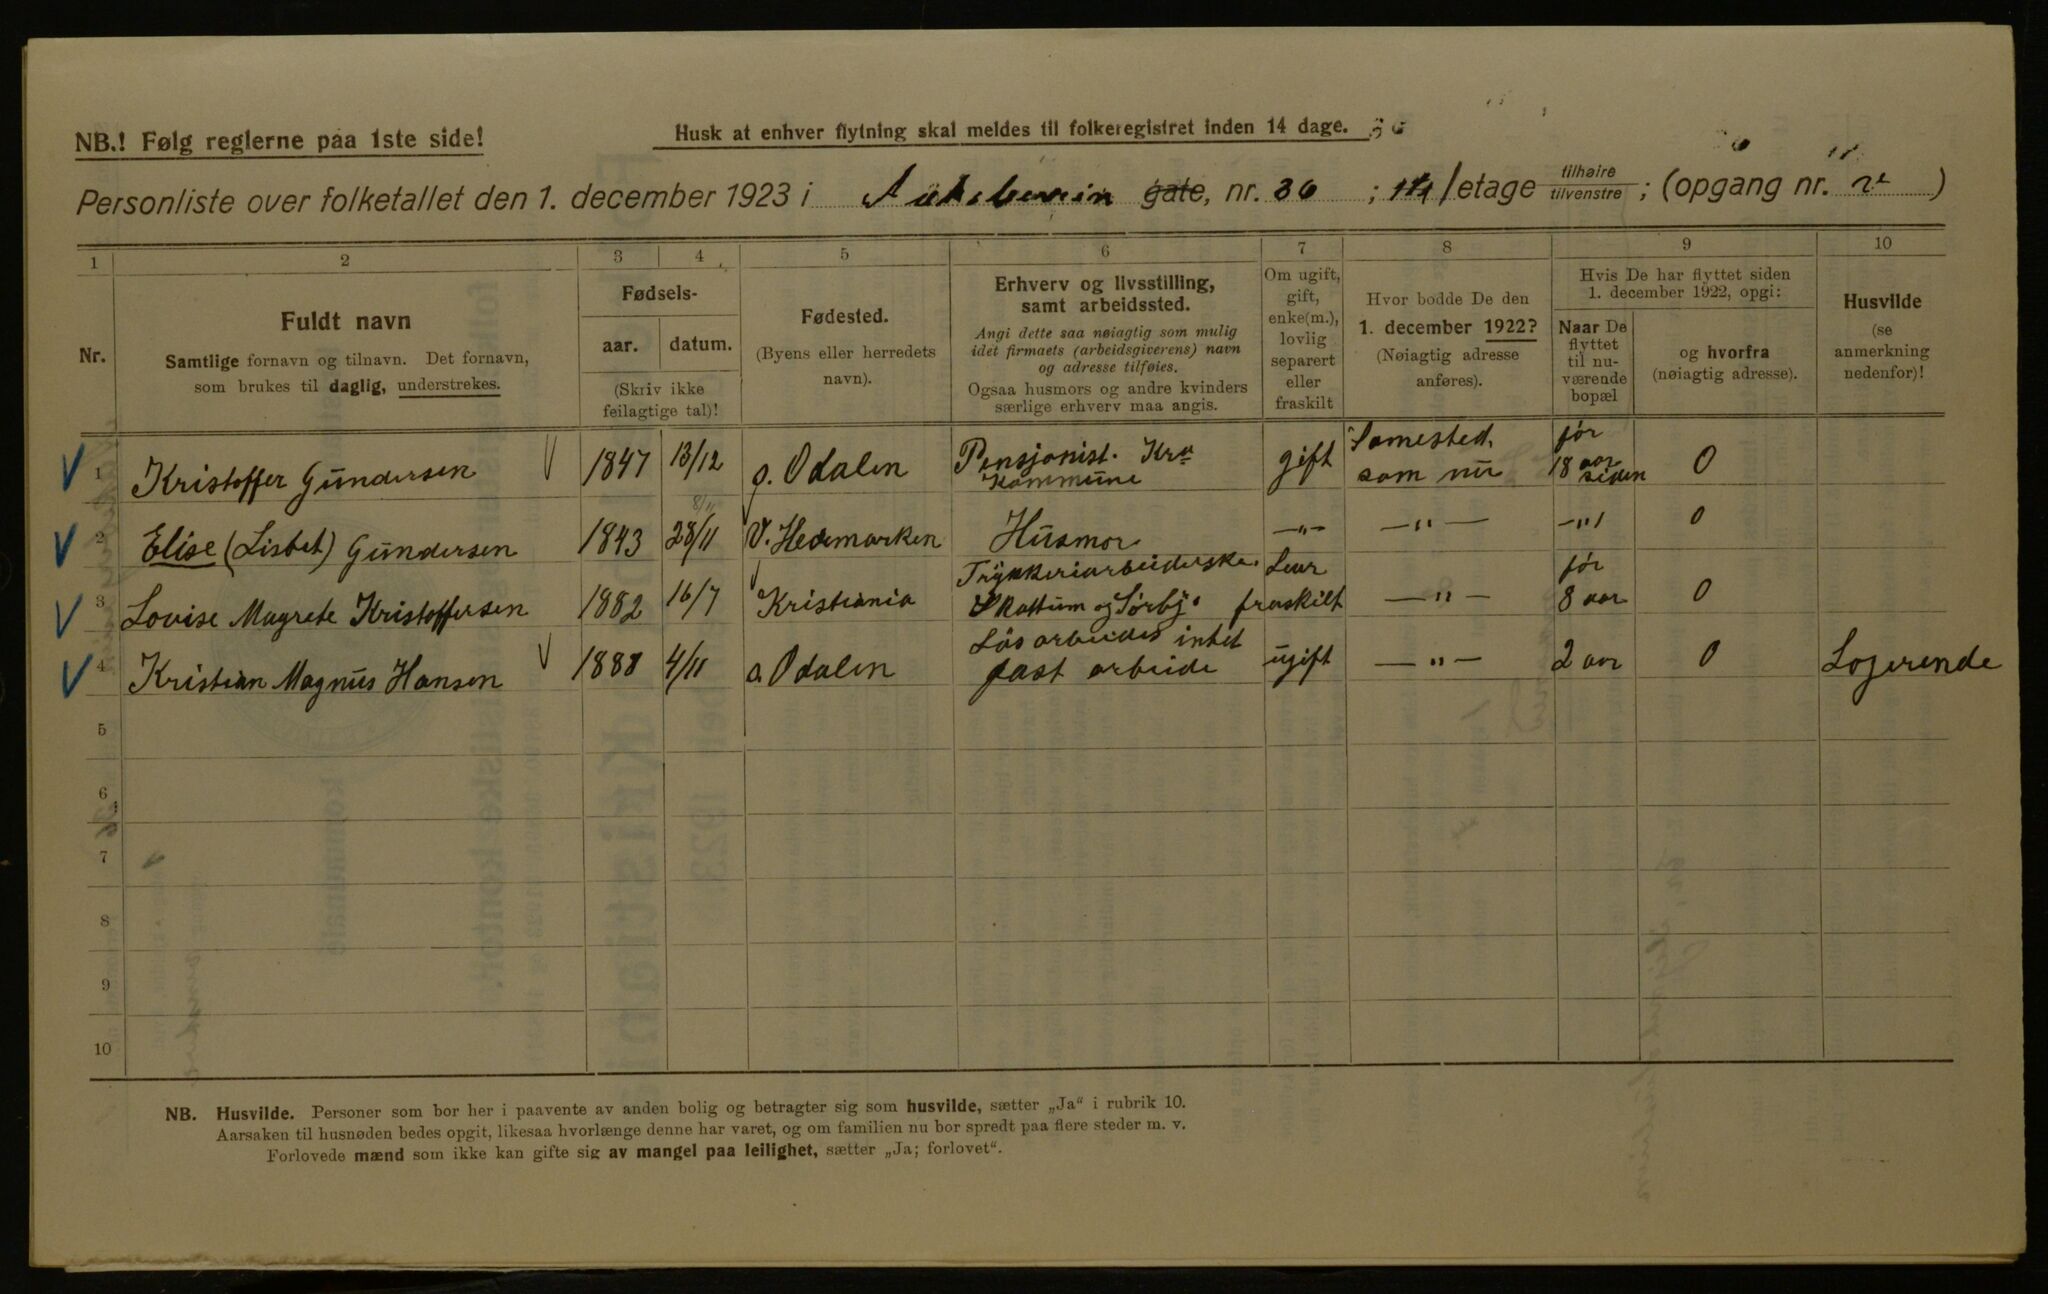 NB.! Følg reglerne paa 1ste side!
Husk at enhver flytning skal meldes til folkeregistret inden 14 dage. 36
Personliste over folketallet den 1. december 1923 i gate, nr. 36; etage tilhøire tilvenstre; (opgang nr. )
1 2 3 4 5 6 7 8 9 10
Nr.
Fuldt navn
Samtlige fornavn og tilnavn. Det fornavn,
som brukes til daglig, understrekes.
Fødsels-
aar. datum.
(Skriv ikke
feilagtige tal)!
Fødested.
(Byens eller herredets
navn).
Erhverv og livsstilling,
samt arbeidssted.
Angi dette saa nøiagtig som mulig
idet firmaets (arbeidsgiverens) navn
og adresse tilføies.
Ogsaa husmors og andre kvinders
særlige erhverv maa angis.
Om ugift,
gift,
enke(m.),
lovlig
separert
eller
fraskilt
Hvor bodde De den
1. december 1922?
(Nøiagtig adresse
anføres).
Hvis De har flyttet siden
1. december 1922, opgi:
Naar De
flyttet
til nu-
værende
bopæl
og hvorfra
(nøiagtig adresse).
Husvilde
(se
anmerkning
nedenfor)!
1 Kristoffer Gundersen 1847 13/12 s. Odalen Pensjonist. Kra Kommune gift Samested som nu før 18 aar siden 0
2 Elise (Lisbet) Gundersen 1843 28/11 8/11 V. Hedemarken Husmor —„— —„— —„— 0
3 Lovise Magrete Kristoffersen 1882 16/7 Kristiania Trykkeriarbeiderske. Skattum og Sørby. fraskilt —„— før 8 aar 0
4 Kristian Magnus Hansen 1888 4/11 s. Odalen Løs arbeides intet fast arbeide ugift —„— 2 aar 0 Logerende
5
6
7
8
9
10
NB. Husvilde. Personer som bor her i paavente av anden bolig og betragter sig som husvilde, sætter „Ja“ i rubrik 10.
Aarsaken til husnøden bedes opgit, likesaa hvorlænge denne har varet, og om familien nu bor spredt paa flere steder m. v.
Forlovede mænd som ikke kan gifte sig av mangel paa leilighet, sætter „Ja; forlovet“.